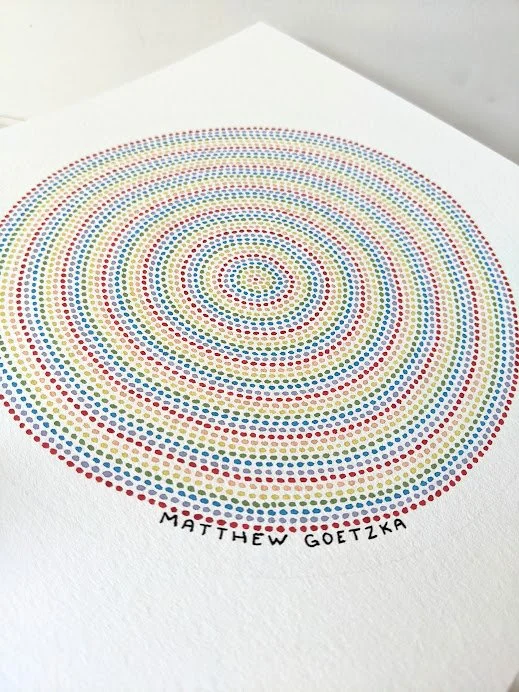 MATTHEW GOETZKA